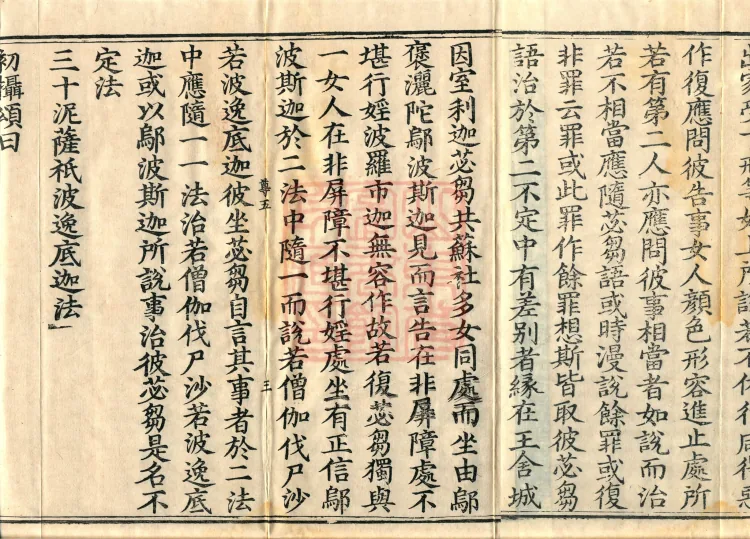 作復應問彼告事女人顏色形容進止處所
若有第二人亦應問彼事相當者如說而治
若不相當應隨苾芻語或時漫說餘罪或復
非罪云罪或此罪作餘罪想斯皆取彼苾芻
語治於第二不定中有差別者縁在王舍城
因室利迦苾芻共蘇社多女同處而坐由鄔
褒灑陀鄔波斯迦見而言告在非屏障處不
堪行婬波羅市迦無容作故若復苾芻獨與
一女人在非屏障不堪行婬處坐有正信鄔
波斯迦於二法中隨一而說若僧伽伐尸沙
尊五 王
若波逸底迦彼坐苾芻自言其事者於二法
中應隨一一法治若僧伽伐尸沙若波逸底
迦或以鄔波斯迦所說事治彼苾芻是名不
定法
三十泥薩祇波逸底迦法
初攝頌曰